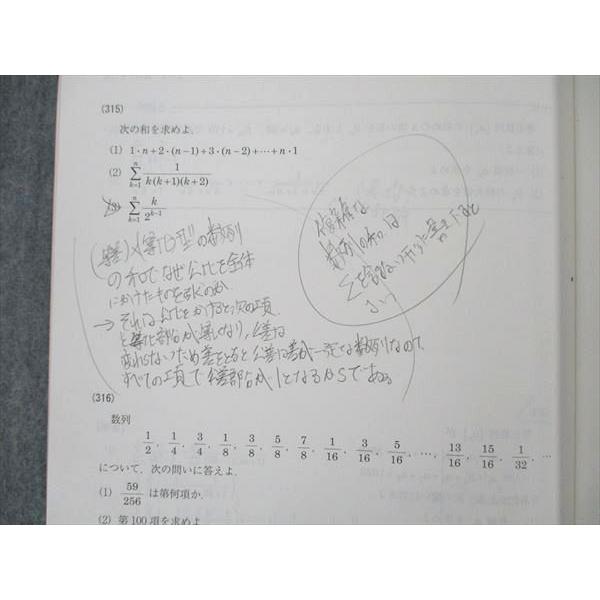 (315)
次の和を求めよ.
(1) 1・n+2・(n−1)+3・(n−2)+…+n・1
(2) \sum_{k=1}^{n} \frac{1}{k(k+1)(k+2)}
\sum_{k=1}^{n} \frac{k}{2^{k-1}}
複雑な
数列の和は
Σを含まない形に書き下すと
よい
(等差)×(等比)型の数列
の和でなぜ公比を全体
にかけたものを引くのか
→それは公比をかけると次の項
と等比部分が等しくなり、公差は
変わらないため差をとると公差は差が一定な数列なので
すべての項で公差部分が1となるからである
(316)
数列
1/2, 1/4, 3/4, 1/8, 3/8, 5/8, 7/8, 1/16, 3/16, 5/16, …, 13/16, 15/16, 1/32, …
について, 次の問いに答えよ.
(1) 59/256 は第何項か.
(2) 第100項を求めよ